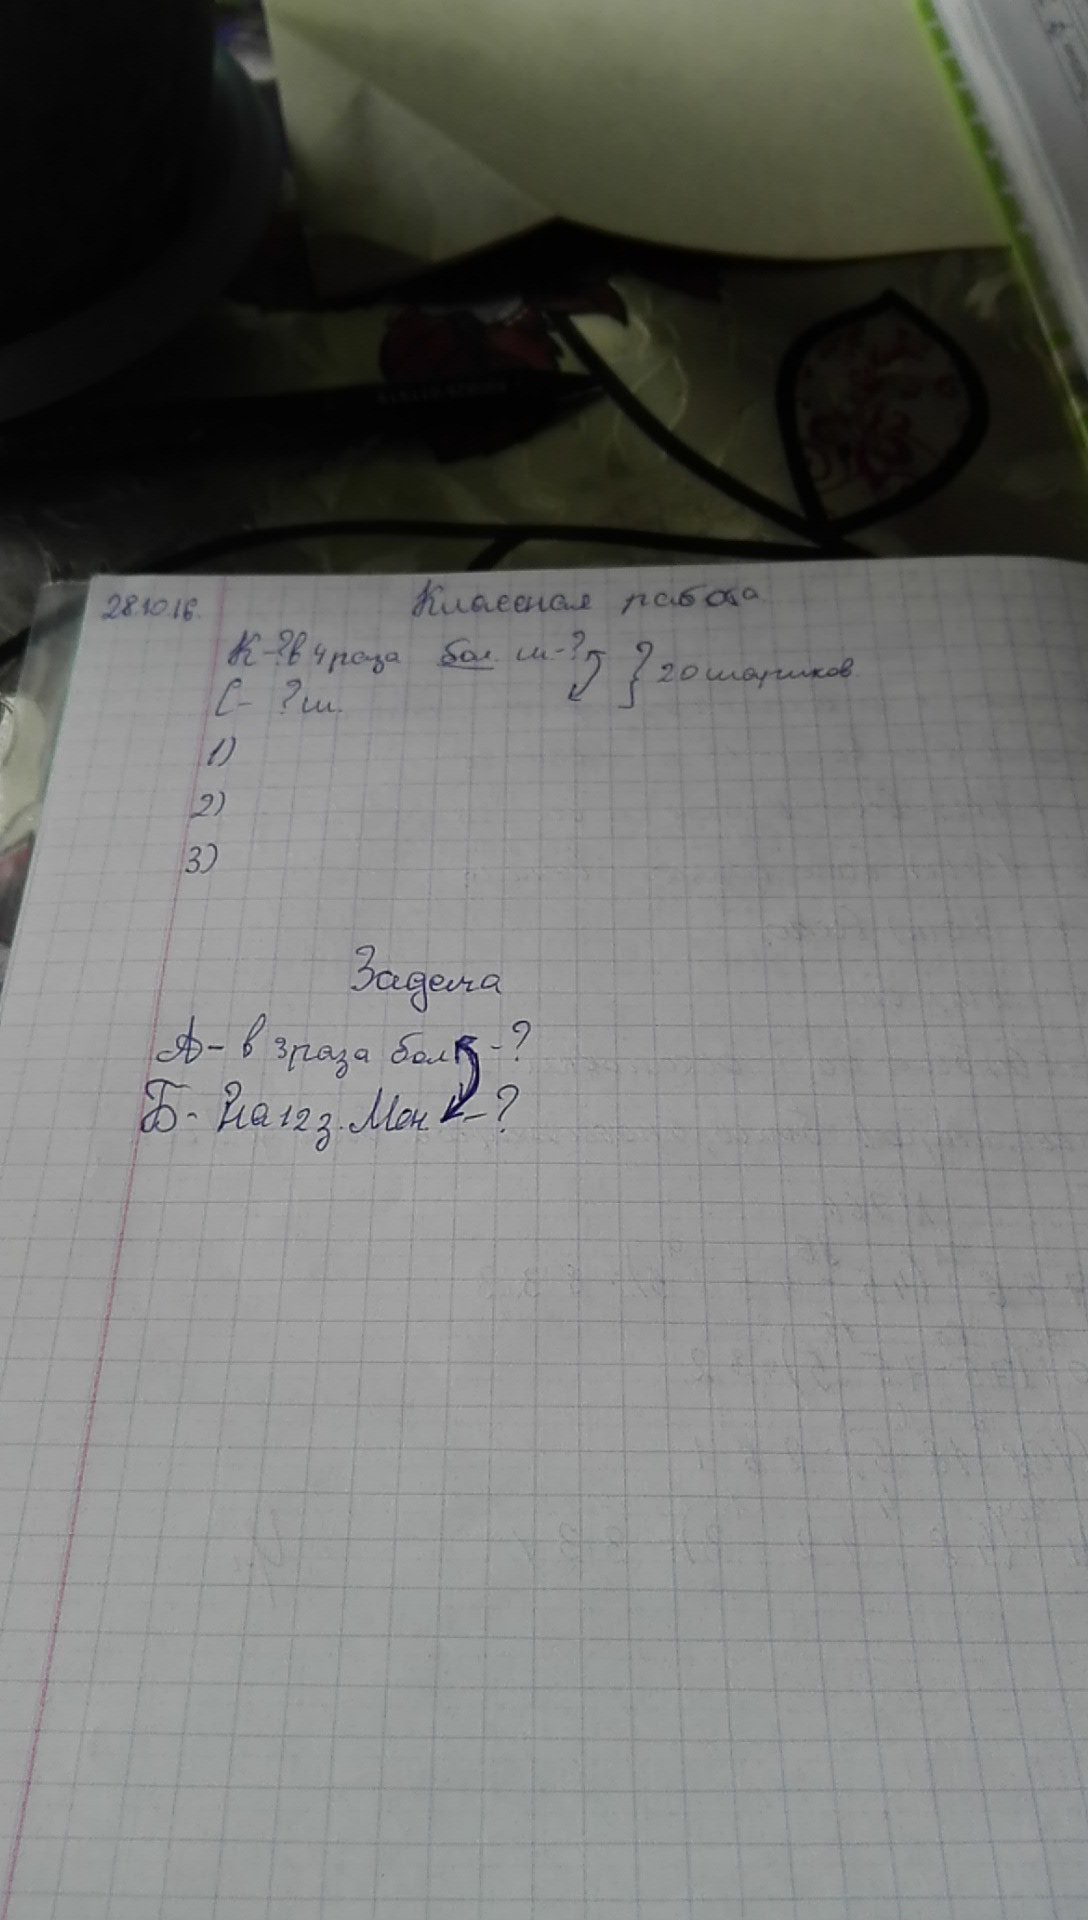 28.10.16.
Классная работа
К-?в 4 раза бол. ш-? } 20 шариков.
С- ? ш.
1)
2)
3)
Задача
А- в 3 раза бол. -?
Б- ? на 12 з. Мен. -?